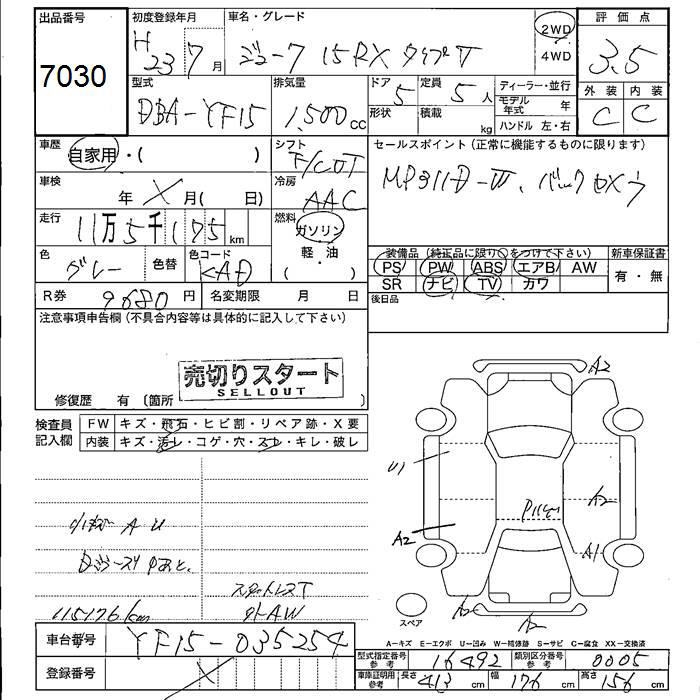 出品番号
7030
初度登録年月
H23 7月
車名・グレード
ジューク 15RX タイプV
2WD
4WD
評価点
3.5
型式
DBA-YF15
排気量
1,500cc
ドア 5
形状
定員 5人
積載 kg
ディーラー・並行
モデル年式 年
ハンドル 左・右
外装 内装
C C
車歴
自家用・( )
シフト
F/CVT
セールスポイント (正常に機能するものに限ります)
車検
年 月( 日)
冷房
AAC
走行
11万5千175km
燃料
ガソリン
軽・油
( )
色
グレー
色替
色コード
KAD
装備品 (純正品に限り○をつけて下さい)
PS PW ABS エアB AW
SR ナビ TV カワ
新車保証書
有・無
R券 9680円
名変期限 月 日
後日品
注意事項申告欄 (不具合内容等は具体的に記入して下さい)
売切りスタート
SELLOUT
修復歴 有 (箇所
検査員
記入欄
FW キズ・飛石・ヒビ割・リペア跡・X要
内装 キズ・汚レ・コゲ・穴・スレ・キレ・破レ
A2
U1
A2
A2
A1
A2
スタットレスT
115176km
外AW
スペア
A-キズ E-エクボ U-凹み W-補修跡 S-サビ C-腐食 XX-交換済
車台番号
YF15-035254
登録番号
型式指定番号
参考
16492
類別区分番号
参考
0005
車庫証明用
参考
長さ 413cm
幅 176cm
高さ 156cm